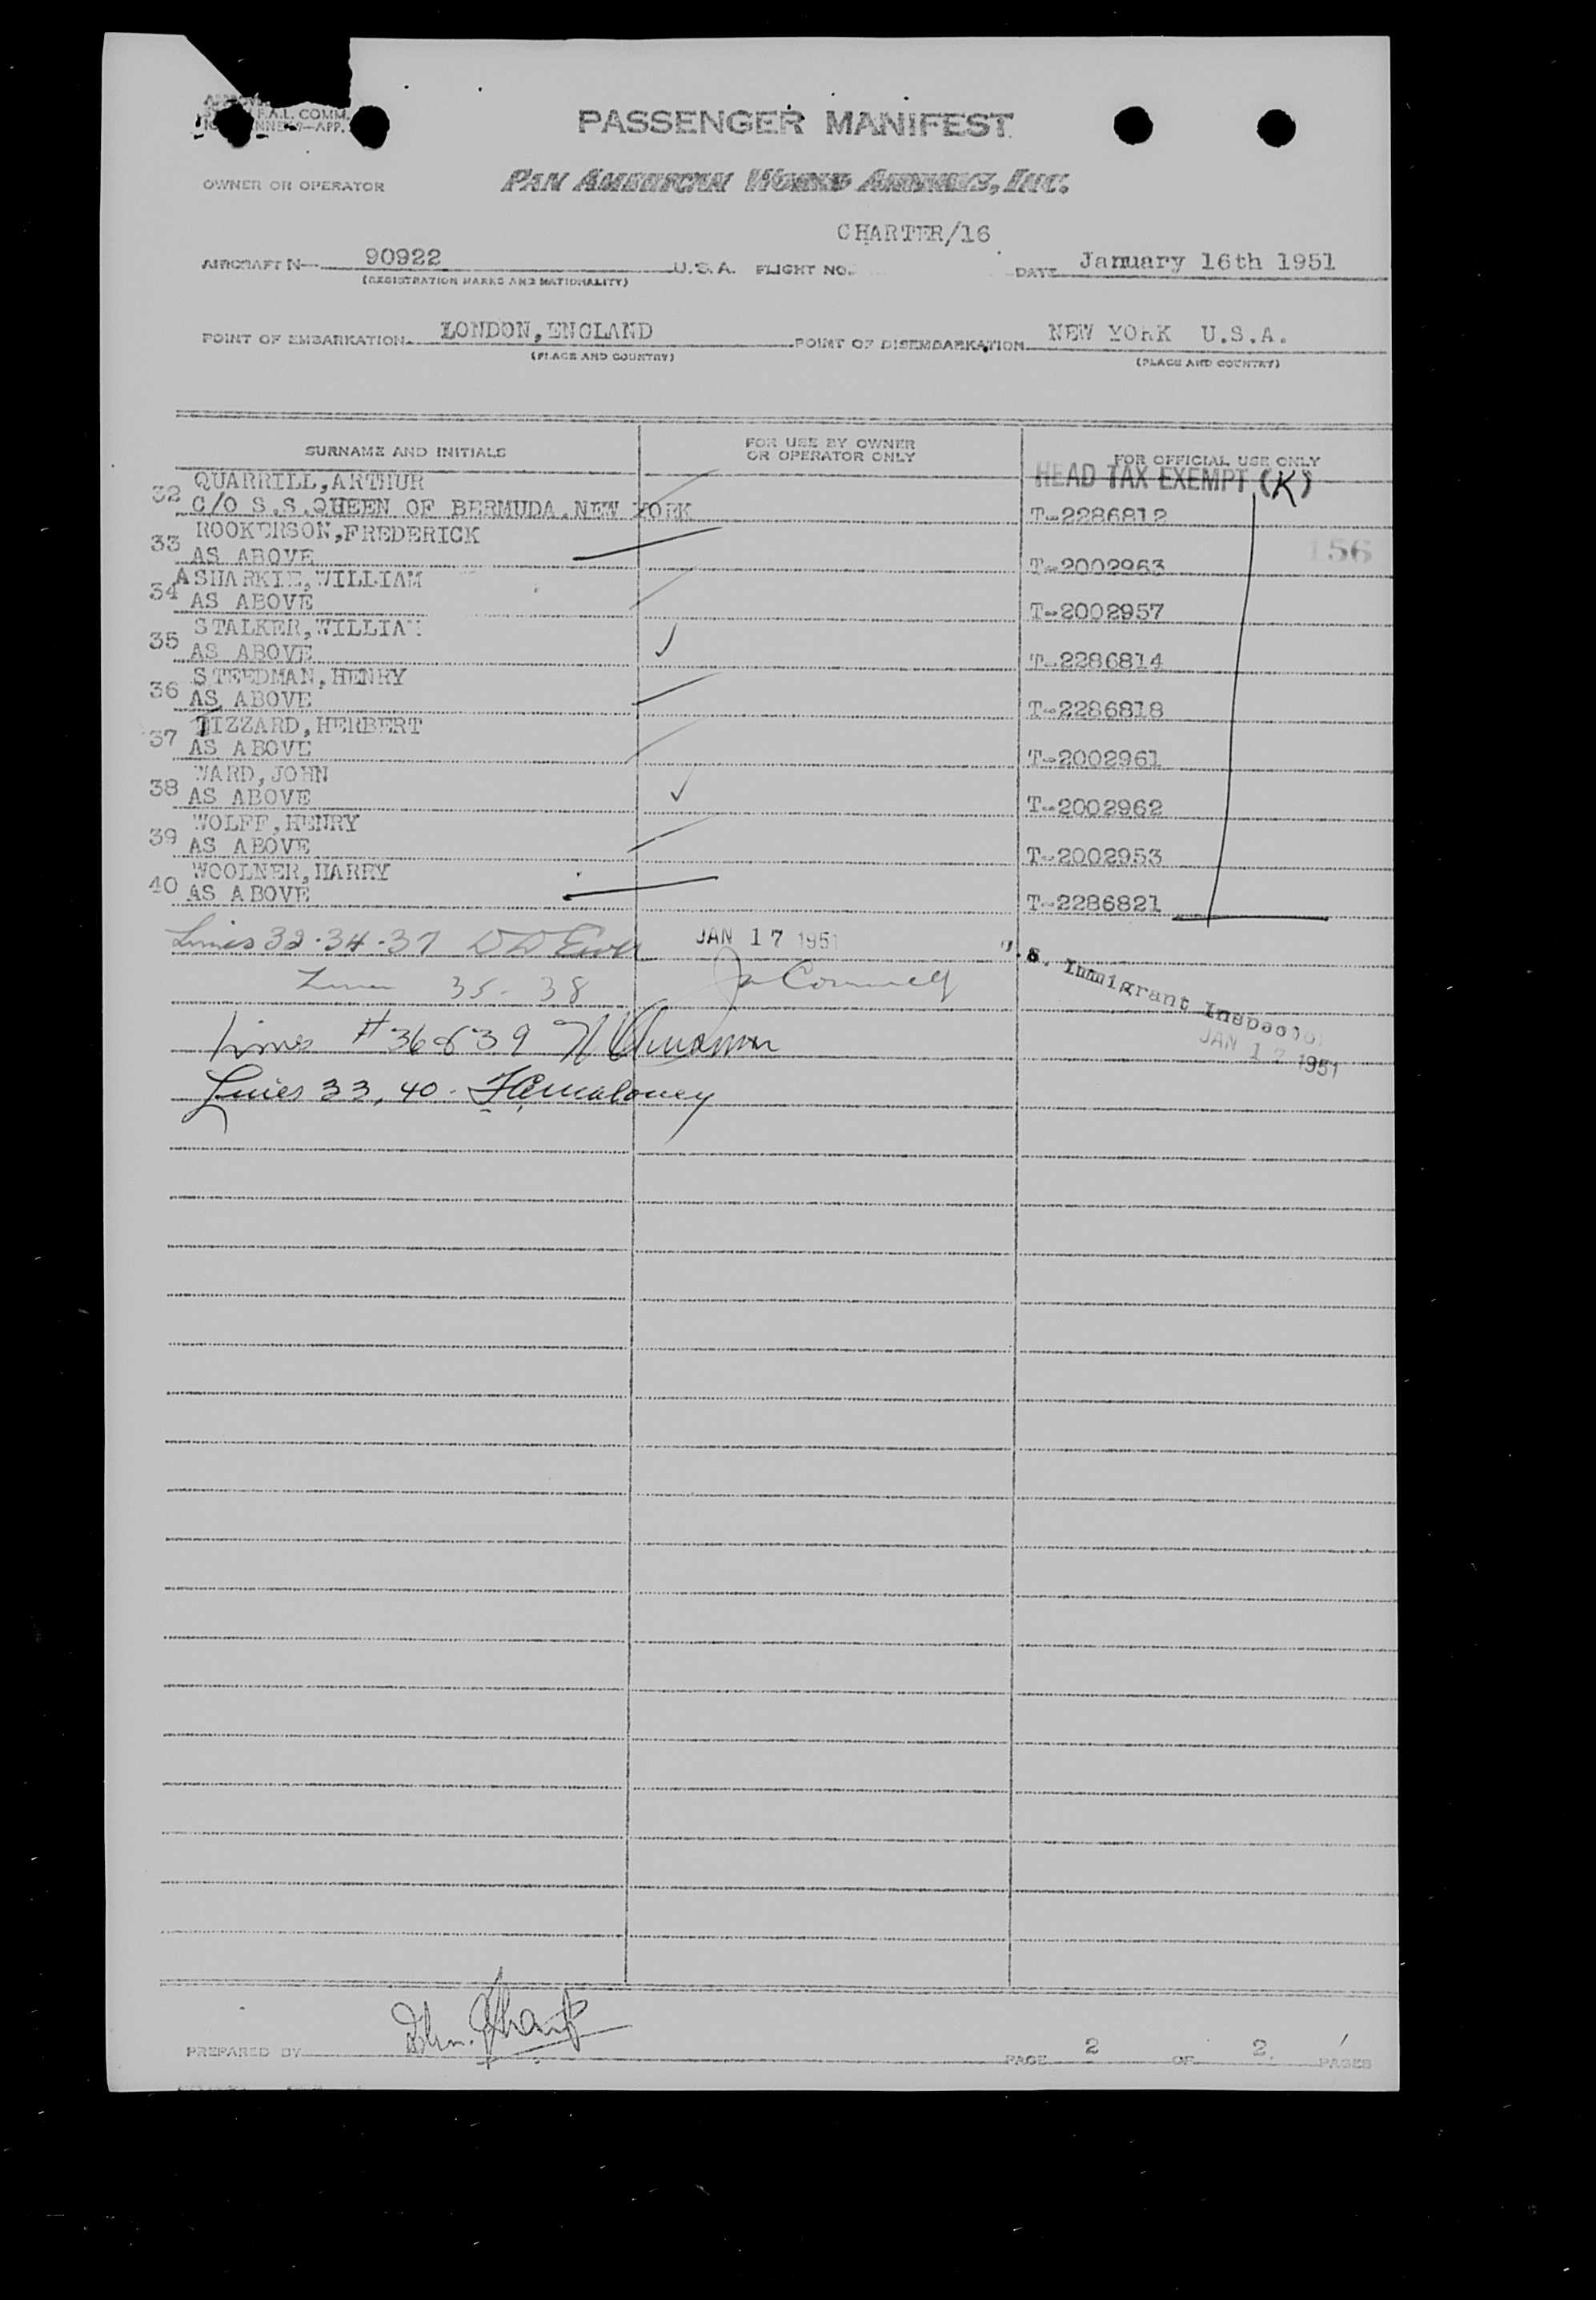 F.A.L. COMM.
PASSENGER MANIFEST
OWNER OR OPERATOR
PAN AMERICAN WORLD AIRWAYS, INC.
CHARTER/16
AIRCRAFT N— 90922 U.S.A. FLIGHT NO. DATE January 16th 1951
(REGISTRATION MARKS AND NATIONALITY)
POINT OF EMBARKATION LONDON,ENGLAND POINT OF DISEMBARKATION NEW YORK U.S.A.
(PLACE AND COUNTRY) (PLACE AND COUNTRY)
SURNAME AND INITIALS FOR USE BY OWNER OR OPERATOR ONLY FOR OFFICIAL USE ONLY
HEAD TAX EXEMPT (K)
QUARRILL,ARTHUR
32 C/O S.S.QUEEN OF BERMUDA.NEW YORK T-2286812
ROOKERSON,FREDERICK
33 AS ABOVE T-2002963
156
SHARKIE,WILLIAM
34 AS ABOVE T-2002957
STALKER,WILLIAM
35 AS ABOVE T-2286814
STEEDMAN,HENRY
36 AS ABOVE T-2286818
TIZZARD,HERBERT
37 AS ABOVE T-2002961
WARD,JOHN
38 AS ABOVE T-2002962
WOLFF,HENRY
39 AS ABOVE T-2002953
WOOLNER,HARRY
40 AS ABOVE T-2286821
Lines 32-34-37 JAN 17 1951
U.S. Immigrant Inspector
Lines 35-38
JAN 17 1951
Lines #36&39
Lines 33, 40- Maloney
PREPARED BY PAGE 2 OF 2. PAGES